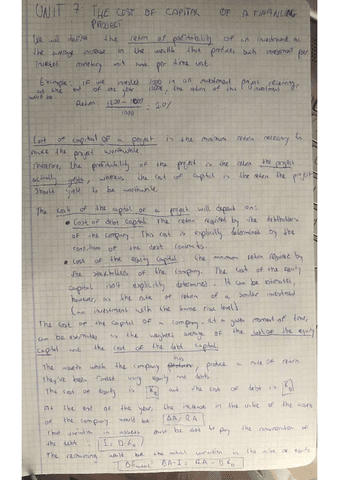 UNIT 7 THE COST OF CAPITAL OF A FINANCING
PROJECT
We will define the return or profitability of an investment as
the average increase in the wealth that produces such investment per
invested monetary unit and per time unit.
Example: if we invested 1000 in an investment project receiving
at the end of one year 1200, the return of this investment
would be
Return 1200 - 1000 / 1000 = 20%
Cost of capital of a project is the minimum return necessary to
make the project worthwhile
Therefore, the profitability of the project is the return the project
actually yields, whereas the cost of capital is the return the project
should yield to be worthwhile.
The cost of the capital of a project will depend on:
• Cost of debt capital. The return required by the debtholders
of the company. This cost is explicitly determined by the
conditions of the debt contracts.
• Cost of the equity capital. The minimum return required by
the stockholders of the company. The cost of the equity
capital isn't explicitly determined. It can be estimated,
however, as the rate of return of a similar investment
(an investment with the same risk level)
The cost of the capital of a company, at a given moment of time,
can be estimated as the weighted average of the cost of the equity
capital and the cost of the debt capital.
The assets which the company has, produce a rate of return
They've been financed using equity and debts
The cost of equity is Ke and the cost of debt is
At the end of the year, the increase in the value of the assets
of the company would be: ΔA = RA·A
That variation in assets must be able to pay the remuneration of
the debt: I =
The remaining would be the variation in the